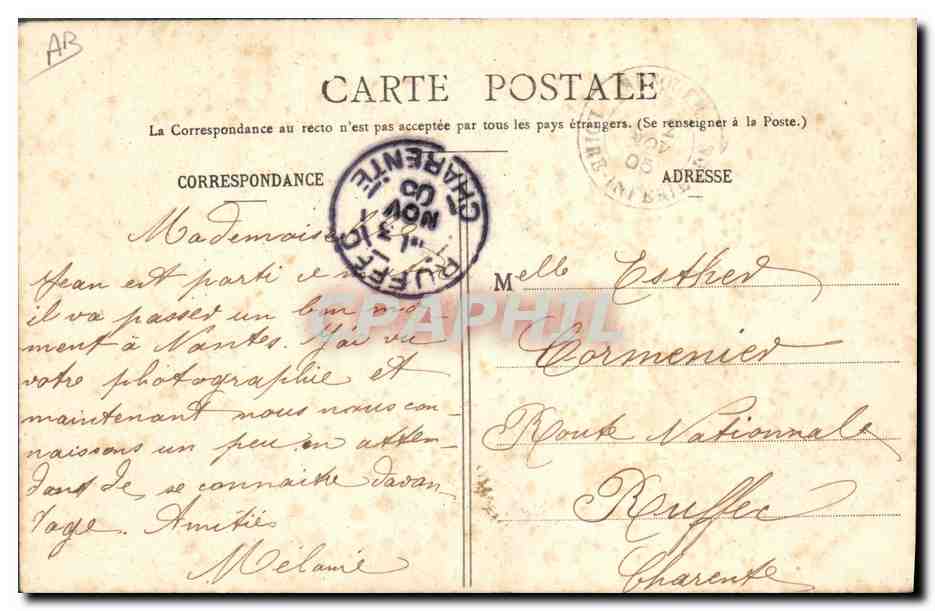 AB
CARTE POSTALE
La Correspondance au recto n'est pas acceptée par tous les pays étrangers. (Se renseigner à la Poste.)
CORRESPONDANCE
Mademoiselle
Jean est parti
il va passer un bon mo-
ment à Nantes. J'ai vu
votre photographie et
maintenant nous nous con-
naissons un peu en atten-
dant de se connaitre davan-
tage. Amitiés
Mélanie
RUFFEC
CHARENTE
NOV
05
ADRESSE
LOIRE-INFERIE
NOV
05
Melle Esther
Cormenier
Route Nationnale
Ruffec
Charente
CPAPHIL